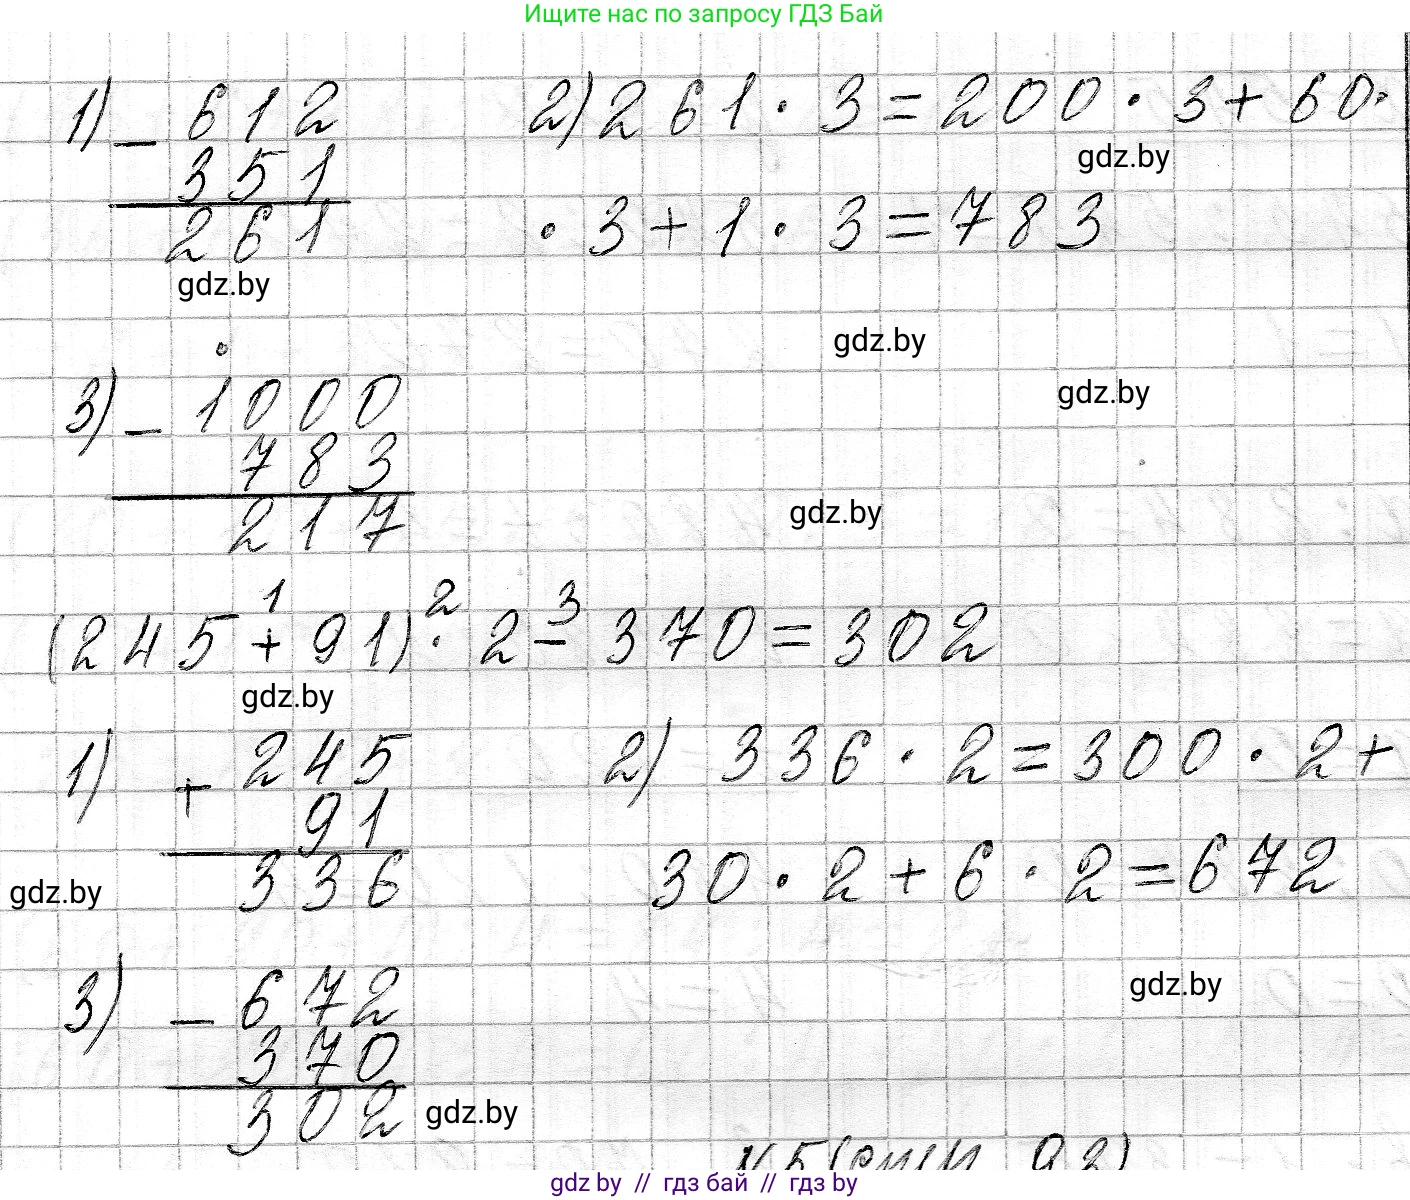 Ищите нас по запросу ГДЗ Бай
1) − 612
351
261
2) 261 · 3 = 200 · 3 + 60 ·
gdz.by
· 3 + 1 · 3 = 783
gdz.by
gdz.by
gdz.by
3) − 1000
783
217
gdz.by
1 2 3
(245 + 91) · 2 − 370 = 302
gdz.by
1) + 245
91
336
2) 336 · 2 = 300 · 2 +
30 · 2 + 6 · 2 = 672
gdz.by
gdz.by
3) − 672
370
302
gdz.by
gdz by // гдз бай // гдз by